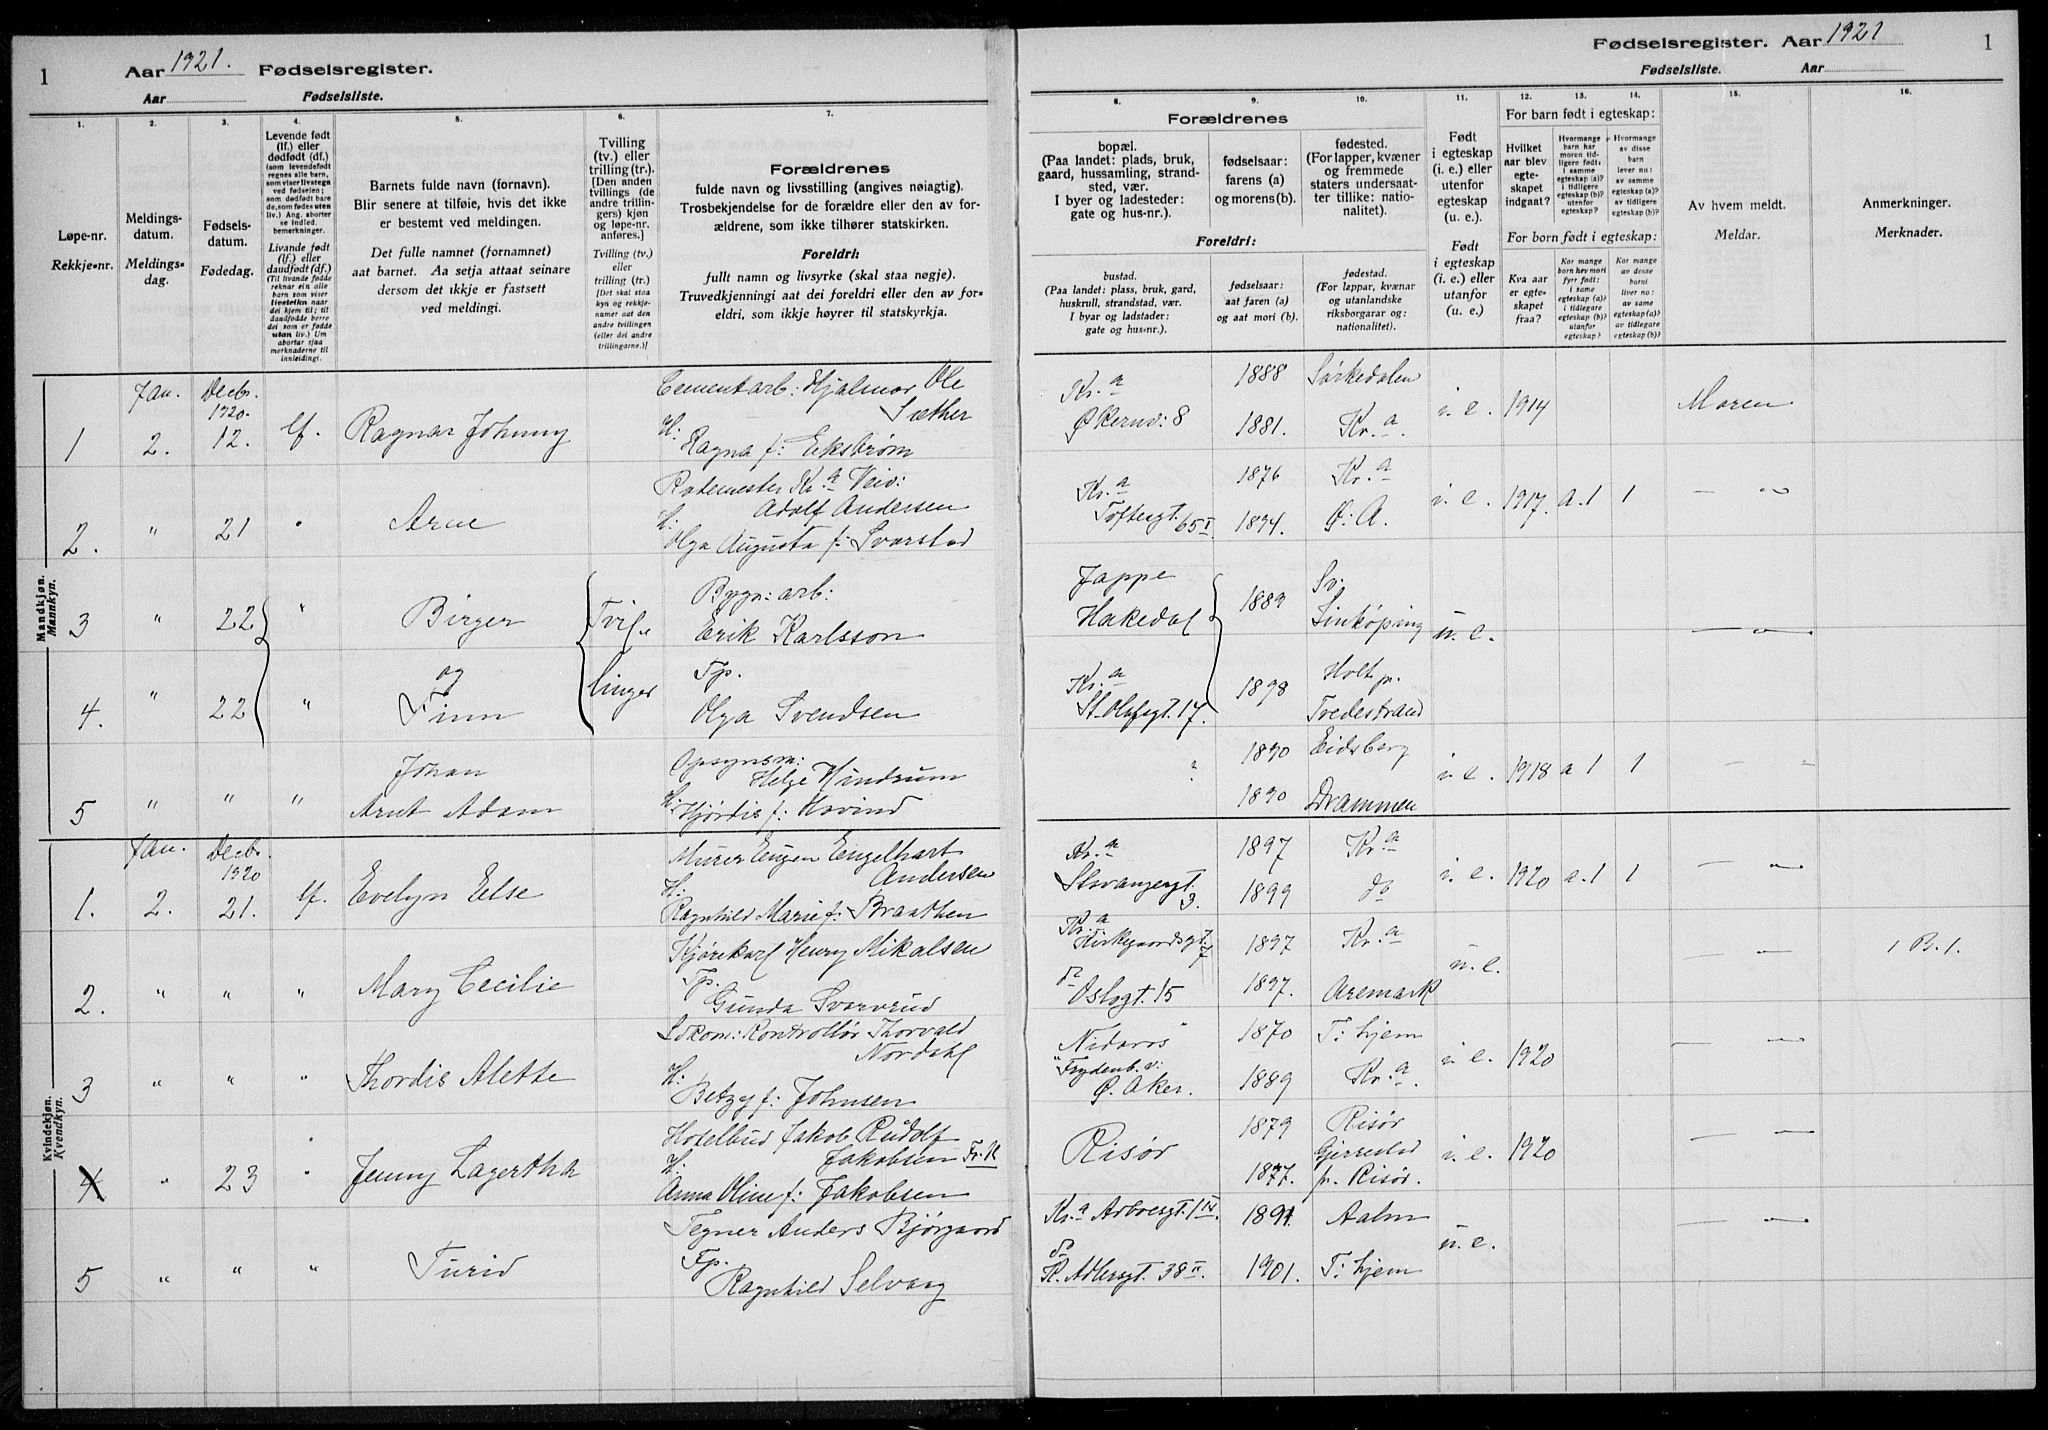 1
Aar 1921. Fødselsregister.
Aar Fødselsliste.
1. 2. 3. 4. 5. 6. 7.
Løpe-nr.
Rekkje=nr.
Meldings-
datum.
Meldings=
dag.
Fødsels-
datum.
Fødedag.
Levende født
(lf.) eller
dødfødt (df.)
(som levendefødt
regnes alle barn,
som viser livstegn
ved fødselen;
som dødfødt bare
de, som fødes uten
liv.) Ang. aborter
se indled.
bemerkninger.
Livande født
(lf.) eller
daudfødt (df.)
(Til livande fødde
reknar ein alle
barn som viser
livsteikn naar
dei kjem til; til
daudfødde berre
dei som er fødde
utan liv.) Um
abortar sjaa
merknaderne til
innleidingi.
Barnets fulde navn (fornavn).
Blir senere at tilføie, hvis det ikke
er bestemt ved meldingen.
Det fulle namnet (fornamnet)
aat barnet. Aa setja attaat seinare
dersom det ikkje er fastsett
ved meldingi.
Tvilling
(tv.) eller
trilling (tr.).
[Den anden
tvillings (de
andre trillin-
gers) kjøn
og løpe-nr.
anføres.]
Tvilling (tv.)
eller
trilling (tr.)
[Det skal staa
kyn og rekkje-
numer aat den
andre tvillingen
(eller dei andre
trillingarne.)]
Forældrenes
fulde navn og livsstilling (angives nøiagtig).
Trosbekjendelse for de forældre eller den av for-
ældrene, som ikke tilhører statskirken.
Foreldri:
fullt namn og livsyrke (skal staa nøgje).
Truvedkjenningi aat dei foreldri eller den av for-
eldri, som ikkje høyrer til statskyrkja.
Mandkjøn.
Mannkyn.
Jan. Decbr. 1920. Cementarb: Hjalmar Ole Sæther
1 2. 12. lf. Ragnar Johnny H: Ragna f: Eekstrøm
Rodemester Kr.a Veiv: Adolf Andersen
2. " 21 " Arne H: Olga Augusta f: Svarstad
Bygn: arb:
3 " 22 " Birger Tvil= Erik Karlsson
og Tp.
4. " 22 " Finn linger Olga Svendsen
Johan Opsynsm: Helge Hindrum
5 " " " Arnt Adam H: Hjørdis f: Hovind
Kvindekjøn.
Kvendkyn.
Jan. Decbr. 1920 Murer Eugen Engelhart Andersen
1. 2. 21. lf. Evelyn Else H: Ragnhild Marie f: Braathen
Kjørekarl Henry Mikalsen
2. " " " Mary Cecilie Tp. Gunda Svarverud
Lokom: Kontrollør Thorvald Nordahl
3 " " " Thordis Alette H: Betzy f: Johnsen
Hotelbud Jakob Rudolf Jakobsen Fr. K
4 " 23 " Jenny Lagertha H: Anna Oline f: Jakobsen
Tegner Anders Bjørgaard
5 " " " Turid Tp. Ragnhild Selvaag
Fødselsregister. Aar 1921
1
Fødselsliste. Aar
8. 9. 10. 11. 12. 13. 14. 15. 16.
Forældrenes
bopæl.
(Paa landet: plads, bruk,
gaard, hussamling, strand-
sted, vær.
I byer og ladesteder:
gate og hus-nr.).
fødselsaar:
farens (a)
og morens (b).
fødested.
(For lapper, kvæner
og fremmede
staters undersaat-
ter tillike: natio-
nalitet).
Foreldri:
bustad.
(Paa landet: plass, bruk, gard,
huskrull, strandstad, vær.
I byar og ladstader:
gate og hus-nr.).
fødselsaar:
aat faren (a)
og aat mori (b).
fødestad.
(For lappar, kvænar
og utanlandske
riksborgarar og:
nationalitet).
Født
i egteskap
(i. e.) eller
utenfor
egteskap
(u. e.).
Født
i egteskap
(i. e.) eller
utanfor
(u. e.).
For barn født i egteskap:
Hvilket
aar blev
egte-
skapet
indgaat?
Hvormange
barn har
moren tid-
ligere født:
i samme
egteskap (a)?
i tidligere
egteskap (b)?
utenfor
egteskap?
Hvormange
av disse
barn
lever nu:
av samme
egteskap (a)?
av tidligere
egteskap (b)?
For born født i egteskap:
Kva aar
er egte-
skapet
fraa?
Kor mange
born hev mori
fyrr født:
i same
egteskap (a)?
i tidlegare
egteskap (b)?
utanfor
egteskap?
Kor mange
av desse
borni
liver no:
av same
egteskap (a)?
av tidlegare
egteskap (b)?
Av hvem meldt.
Meldar.
Anmerkninger.
Merknader.
Kr.a 1888 Sørkedalen
Økernv: 8 1881. Kr.a. i. e. 1914 Moren
Kr.a 1876 Kr.a
Toftesgt. 65 I 1894. Ø: A. i. e. 1917. a. 1 1 — " —
Jappe Hakedal 1889 Sv: Linkøping u. e. — " —
Kr.a St. Olafsgt. 17. 1898 Holt p. Tvedestrand
" 1890 Eidsberg
1890 Drammen i. e. 1918 a 1 1 — " —
Kr.a 1897 Kr.a
Stavangergt. 3. 1899 do i. e. 1920 a. 1 1 — " —
Kr.a Kirkegaardsgt. 7 1897 Kr.a
do Oslogt. 15 1897. Aremark u. e. — " — 1 B. 1.
Nidaros 1870 T: hjem
Frydenb. v: Ø. Aker. 1889 Kr.a. i. e. 1920 — " —
Risør 1879 Risør
1877. Gjerrestad pr. Risør. i. e. 1920 — " —
Kr.a Arbosgt. 1 IV. 1891. Aalen
do K. Adlersgt. 38 II. 1901. T: hjem u. e. — " —